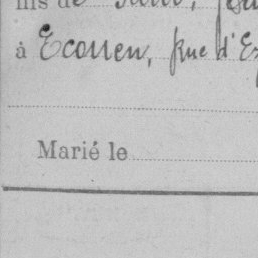 fils de
à Ecouen, Rue d'Ez
Marié le